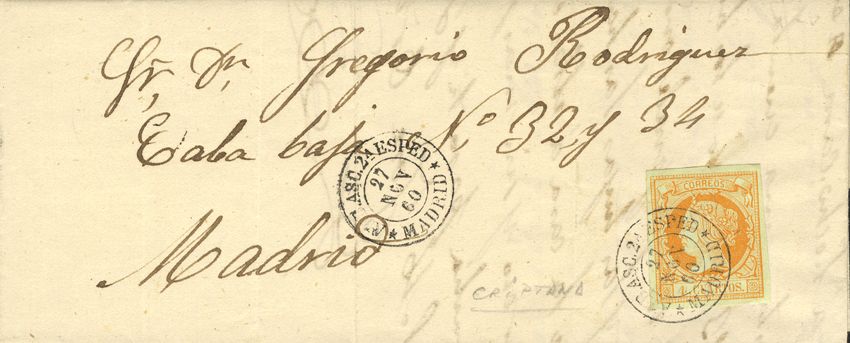 Sr, Dn Gregorio Rodriguez
Caba baja No 32, y 34
Madrid
ASC. 2A ESPED * MADRID *
27
NOV
60
CORREOS
4 CUARTOS.
ASC. 2A ESPED * MADRID *
27
60
CRIPTANA